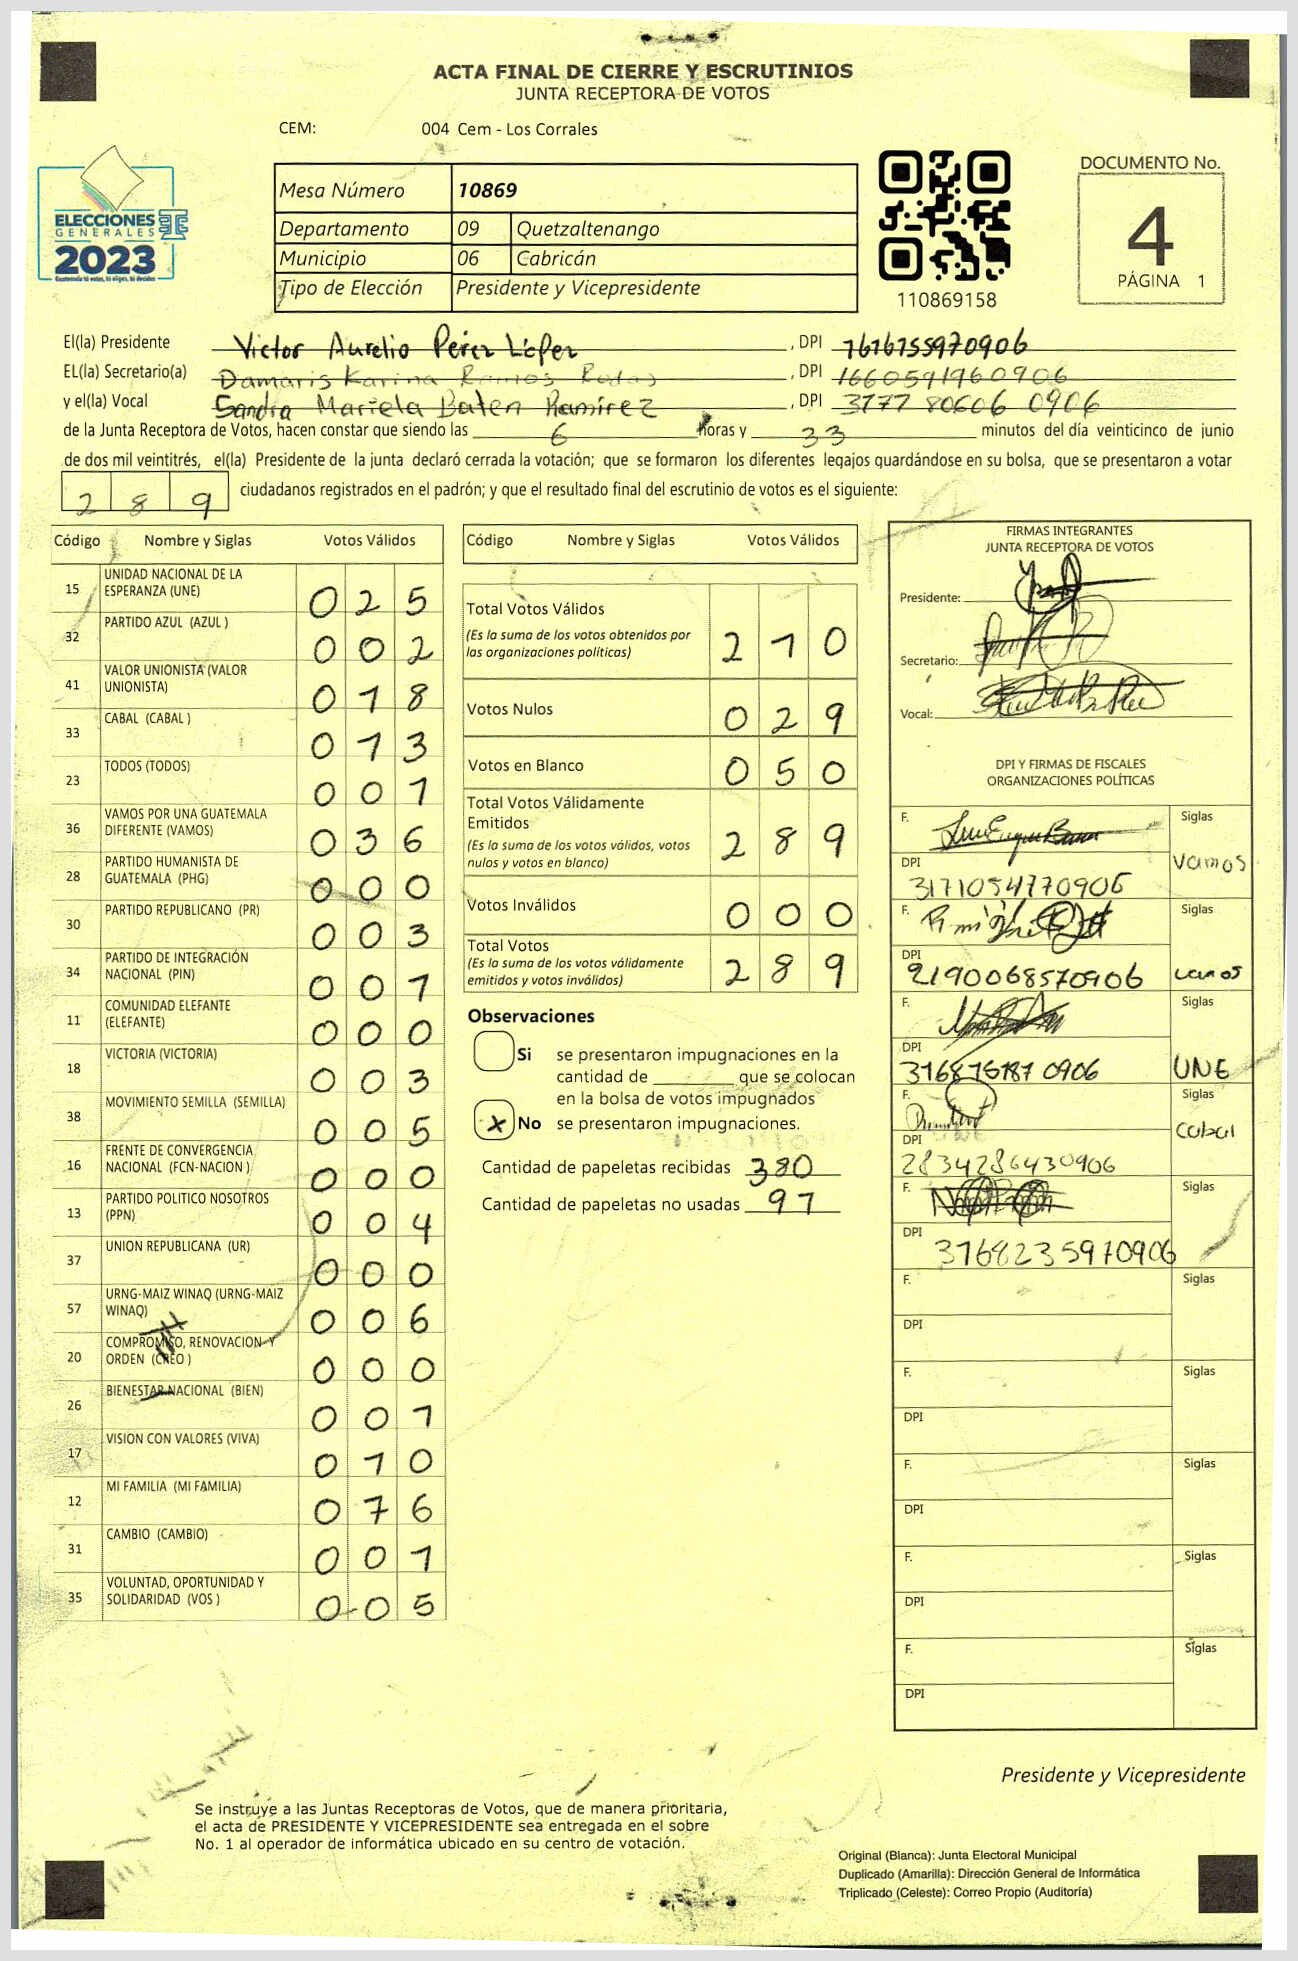 ACTA FINAL DE CIERRE Y ESCRUTINIOS
JUNTA RECEPTORA DE VOTOS
CEM: 004 Cem - Los Corrales
ELECCIONES
GENERALES
2023
Mesa Número 10869
Departamento 09 Quetzaltenango
Municipio 06 Cabricán
Tipo de Elección Presidente y Vicepresidente
110869158
DOCUMENTO No.
4
PÁGINA 1
El(la) Presidente Victor Aurelio Pérez López, DPI 1616755970906
EL(la) Secretario(a) Damaris Karina Ramos Rodas, DPI 1660591960906
y el(la) Vocal Sandra Mariela Baten Ramirez, DPI 3177 80606 0906
de la Junta Receptora de Votos, hacen constar que siendo las 6 horas y 33 minutos del día veinticinco de junio
de dos mil veintitrés, el(la) Presidente de la junta declaró cerrada la votación; que se formaron los diferentes legajos guardándose en su bolsa, que se presentaron a votar
289 ciudadanos registrados en el padrón; y que el resultado final del escrutinio de votos es el siguiente:
Código Nombre y Siglas Votos Válidos
15 UNIDAD NACIONAL DE LA ESPERANZA (UNE) 025
32 PARTIDO AZUL (AZUL ) 002
41 VALOR UNIONISTA (VALOR UNIONISTA) 018
33 CABAL (CABAL ) 013
23 TODOS (TODOS) 001
36 VAMOS POR UNA GUATEMALA DIFERENTE (VAMOS) 036
28 PARTIDO HUMANISTA DE GUATEMALA (PHG) 000
30 PARTIDO REPUBLICANO (PR) 003
34 PARTIDO DE INTEGRACIÓN NACIONAL (PIN) 001
11 COMUNIDAD ELEFANTE (ELEFANTE) 000
18 VICTORIA (VICTORIA) 003
38 MOVIMIENTO SEMILLA (SEMILLA) 005
16 FRENTE DE CONVERGENCIA NACIONAL (FCN-NACION ) 000
13 PARTIDO POLITICO NOSOTROS (PPN) 004
37 UNION REPUBLICANA (UR) 000
57 URNG-MAIZ WINAQ (URNG-MAIZ WINAQ) 006
20 COMPROMISO, RENOVACION Y ORDEN (CREO ) 000
26 BIENESTAR NACIONAL (BIEN) 001
17 VISION CON VALORES (VIVA) 010
12 MI FAMILIA (MI FAMILIA) 076
31 CAMBIO (CAMBIO) 001
35 VOLUNTAD, OPORTUNIDAD Y SOLIDARIDAD (VOS ) 005
Código Nombre y Siglas Votos Válidos
Total Votos Válidos 210
(Es la suma de los votos obtenidos por
las organizaciones políticas)
Votos Nulos 029
Votos en Blanco 050
Total Votos Válidamente
Emitidos 289
(Es la suma de los votos válidos, votos
nulos y votos en blanco)
Votos Inválidos 000
Total Votos 289
(Es la suma de los votos válidamente
emitidos y votos inválidos)
Observaciones
Si se presentaron impugnaciones en la
cantidad de ______ que se colocan
en la bolsa de votos impugnados
x No se presentaron impugnaciones.
Cantidad de papeletas recibidas 380
Cantidad de papeletas no usadas 91
FIRMAS INTEGRANTES
JUNTA RECEPTORA DE VOTOS
Presidente:
Secretario:
Vocal:
DPI Y FIRMAS DE FISCALES
ORGANIZACIONES POLÍTICAS
F. Siglas
DPI 3171054770906 Vamos
F. Siglas
DPI 2190068570906 Vamos
F. Siglas
DPI 3168751870906 UNE
F. Siglas
DPI 2834286430906 Cabal
F. Siglas
DPI 3768235970906
F. Siglas
DPI
F. Siglas
DPI
F. Siglas
DPI
F. Siglas
DPI
F. Siglas
DPI
Presidente y Vicepresidente
Se instruye a las Juntas Receptoras de Votos, que de manera prioritaria,
el acta de PRESIDENTE Y VICEPRESIDENTE sea entregada en el sobre
No. 1 al operador de informática ubicado en su centro de votación.
Original (Blanca): Junta Electoral Municipal
Duplicado (Amarilla): Dirección General de Informática
Triplicado (Celeste): Correo Propio (Auditoría)